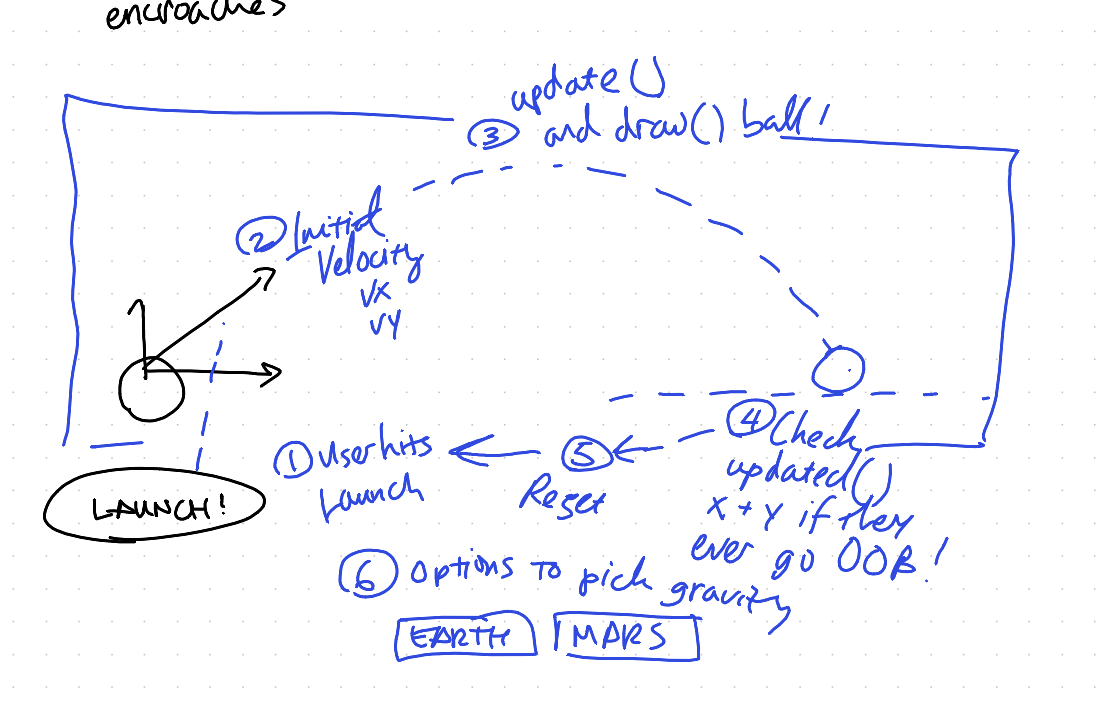 encroaches
update()
③ and draw() ball!
② Initial
Velocity
vx
vy
LAUNCH!
① User hits
Launch
⑤
Reset
④ Check
updated()
x + y if they
ever go OOB!
⑥ Options to pick gravity
EARTH
MARS